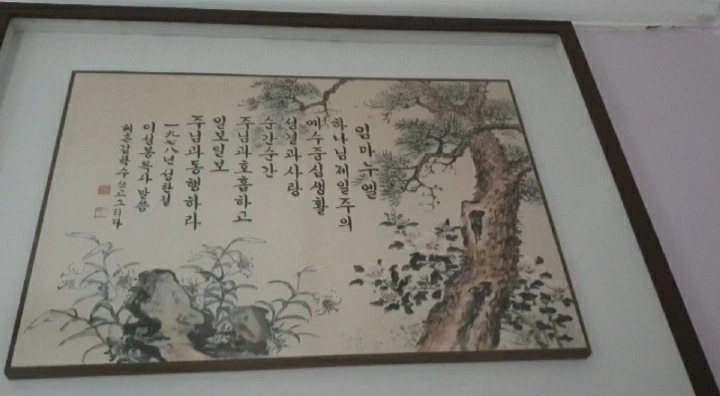 임마누엘
하나님 제일주의
예수중심생활
성결과 사랑
순간순간
주님과 호흡하고
일보일보
주님과 동행하라
一九七八년 삼한절
이성봉목사 말씀
희촌 김학수 쓰고 그리다